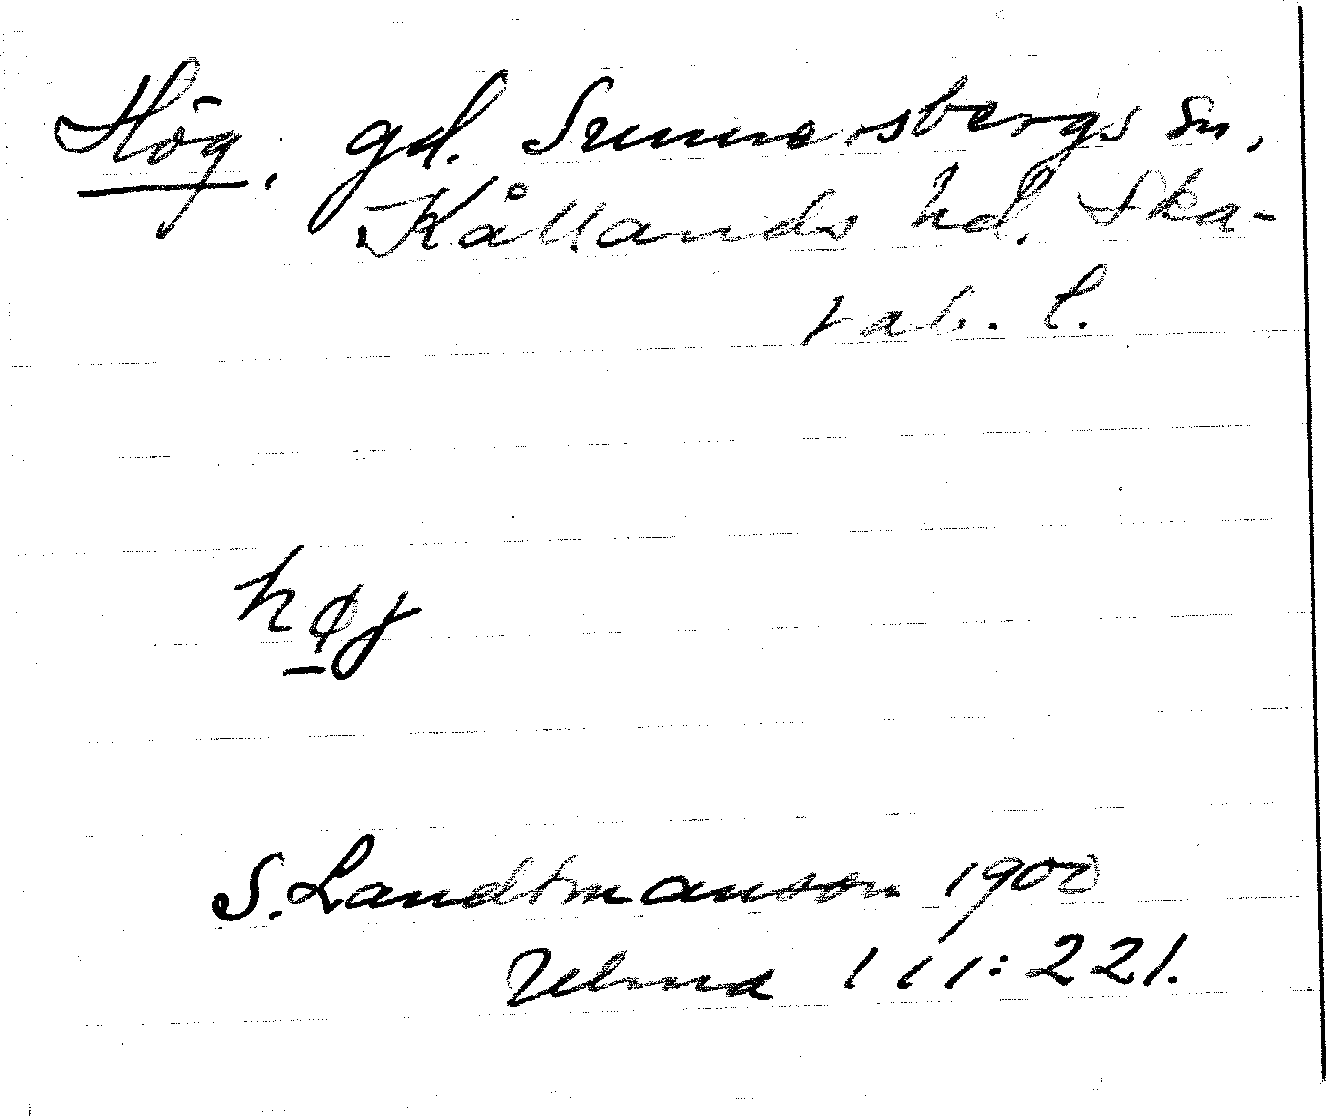 Hög, gd. Sunnersbergs sn,
Kållands hd. Ska-
rab. l.
høj
S. Landtmanson 1900
Ulma 111:221.